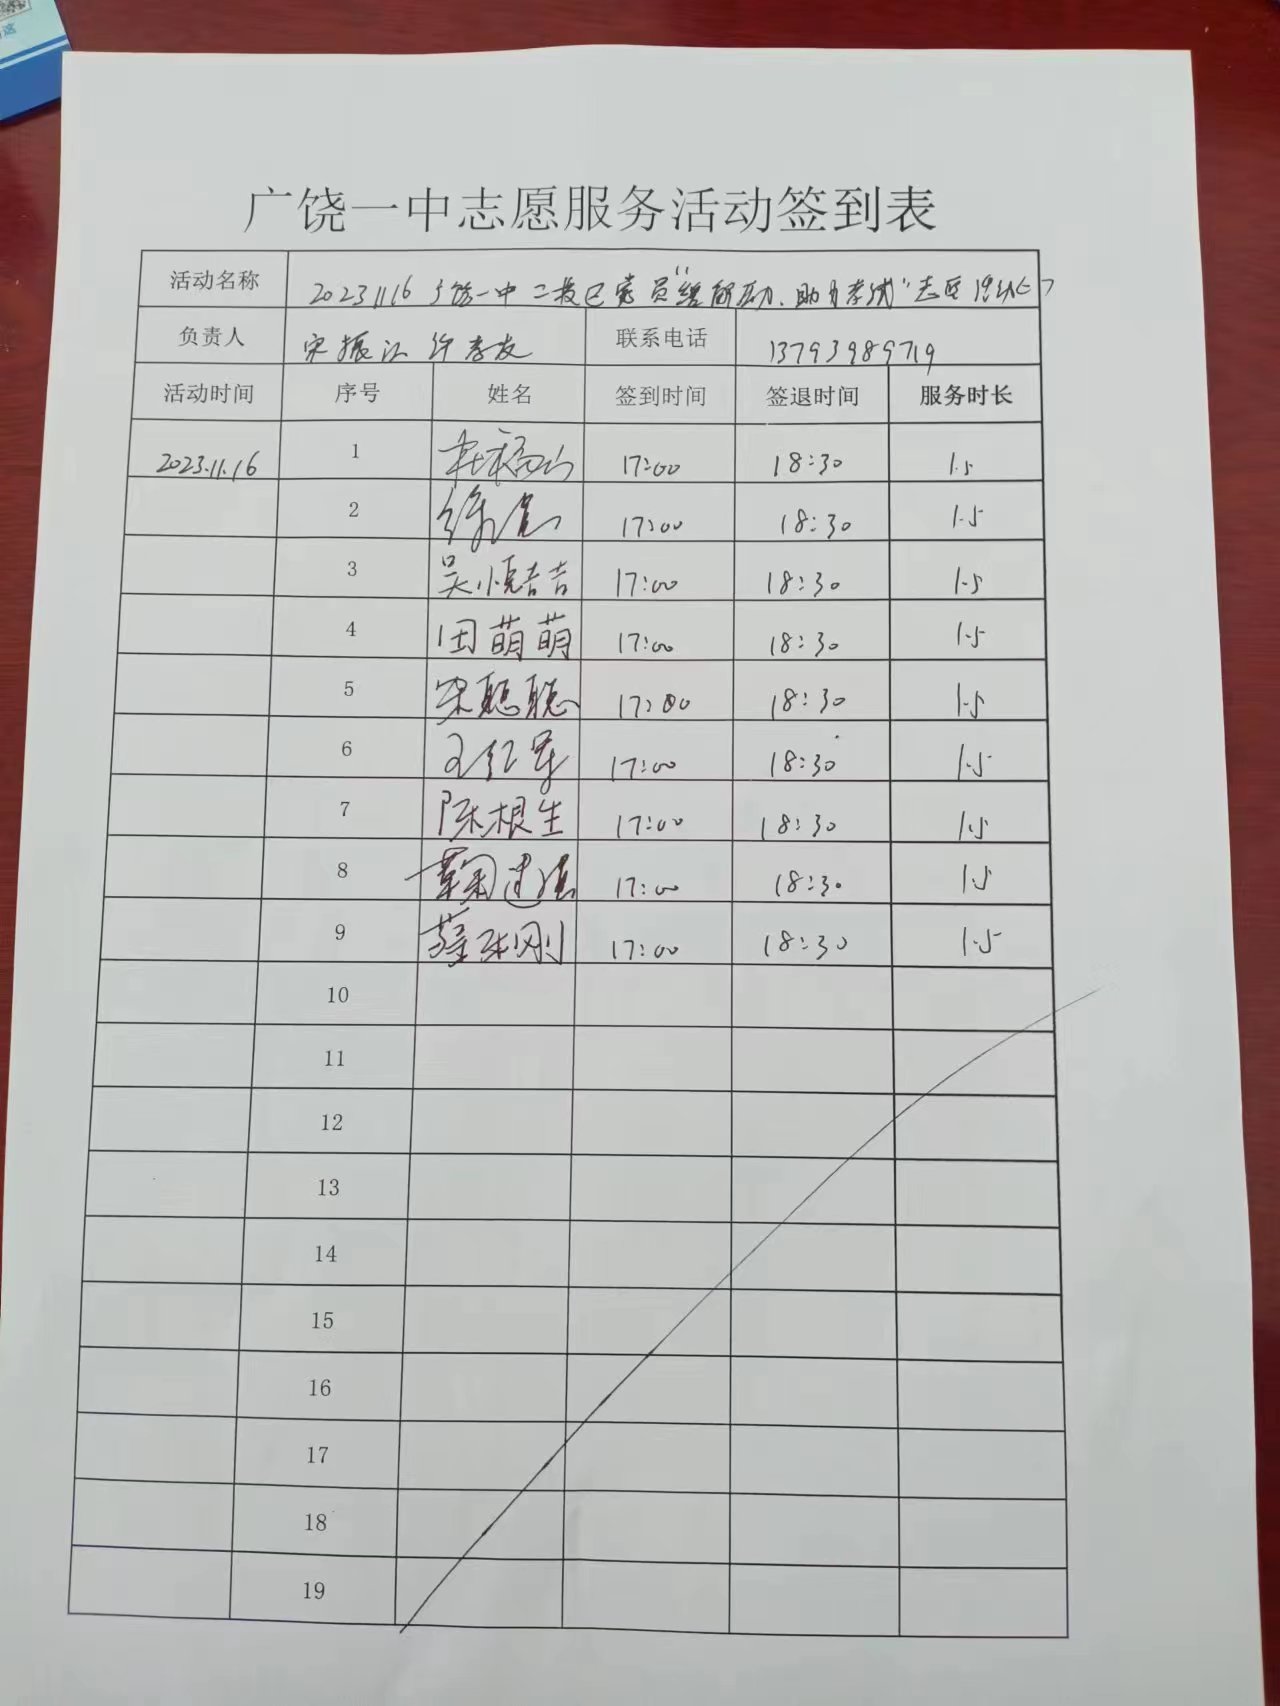 广饶一中志愿服务活动签到表
活动名称 20231116 广饶一中二校区党员
负责人 宋振江 许孝友 联系电话 13793989719
活动时间 序号 姓名 签到时间 签退时间 服务时长
2023.11.16 1 17:00 18:30 1.5
2 17:00 18:30 1.5
3 吴小倩吉 17:00 18:30 1.5
4 田萌萌 17:00 18:30 1.5
5 宋聪聪 17:00 18:30 1.5
6 王红军 17:00 18:30 1.5
7 陈根生 17:00 18:30 1.5
8 17:00 18:30 1.5
9 17:00 18:30 1.5
10
11
12
13
14
15
16
17
18
19